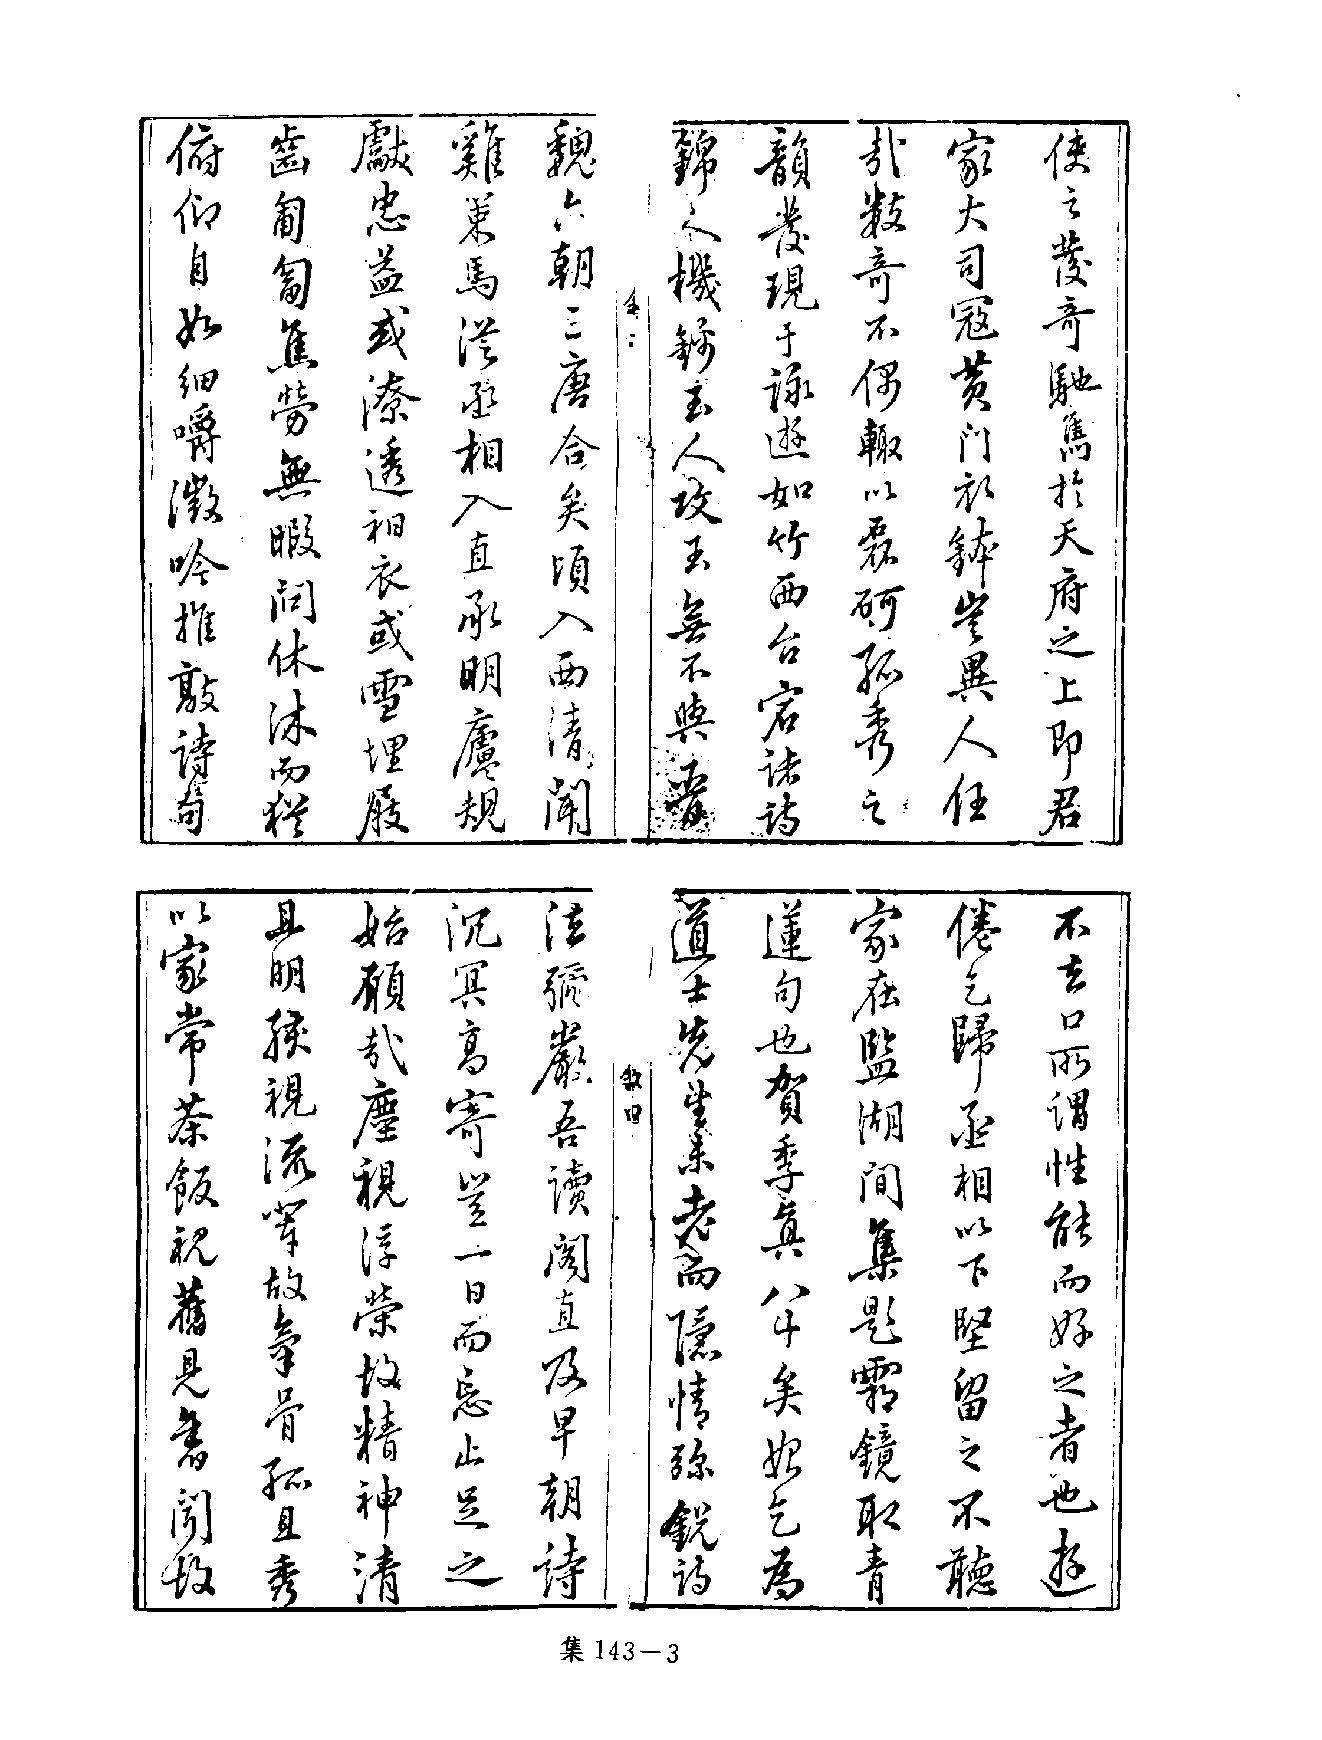 使之發奇馳雋於天府之上即君
家大司寇黃門衣鉢豈異人任
哉數奇不偶輙以磊砢孤秀之
韻發現于詠遊如竹西台宕諸詩
錦人機錦玉人攻玉無不與晉
魏六朝三唐合矣頃入西清聞
雞策馬從丞相入直承明廬規
獻忠益或潦透裀衣或雪埋屐
齒匍匐焦勞無暇問休沐而猶
俯仰自如細嚼微吟推敲詩句
不去口所謂性能而好之者也遊
倦乞歸丞相以下堅留之不聽
家在監湖間集題霜鏡取青
蓮句也賀季真八十矣始乞為
道士先生未老而隱情彌銳詩
法彌嚴吾讀閣直及早朝詩
沉冥高寄豈一日而忘止足之
始願哉塵視浮榮故精神清
且明穢視流輩故氣骨孤且秀
以家常茶飯視舊見舊聞故
集 143－3